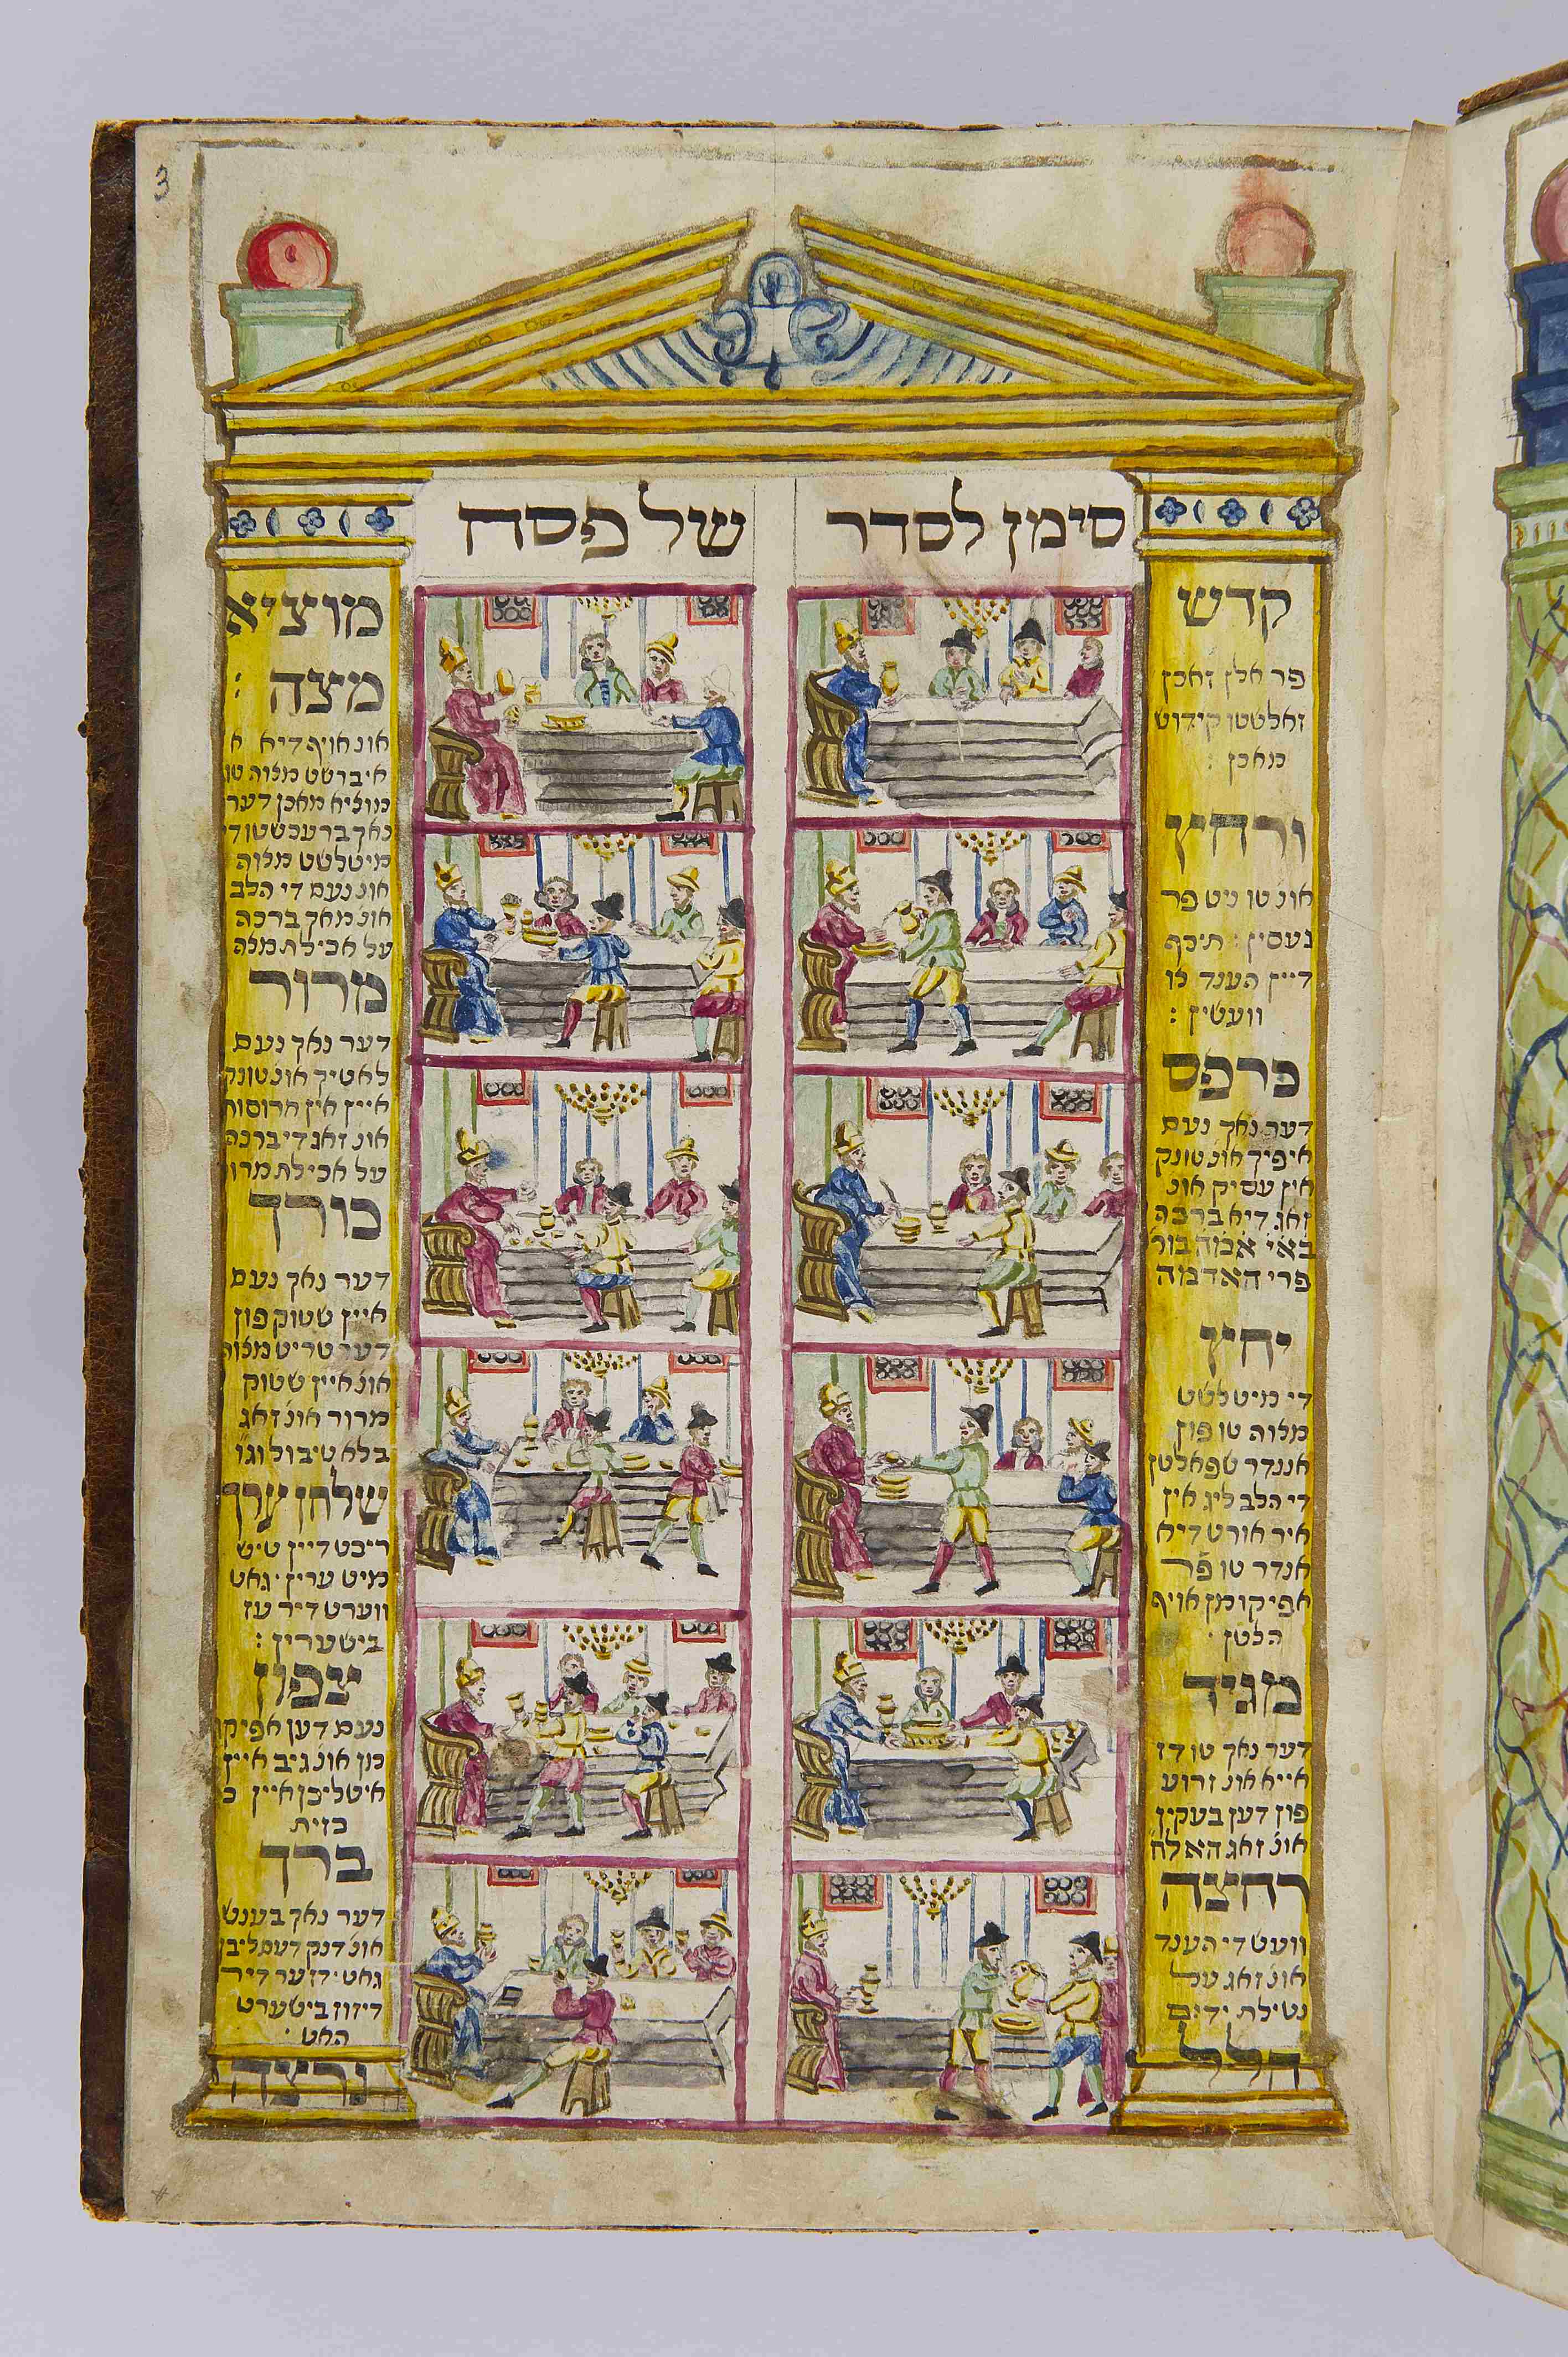 3
סימן לסדר של פסח
קדש
פר אלן זאכן
זאלשטו קידוש
מאכן :
ורחץ
אונ טו ניט פר
געסין : תיכף
דיין הענד צו
וועשין :
כרפס
דער נאך נעם
איפיך אונ טונק
אין עסיק אונ
זאג דיא ברכה
בורא
פרי האדמה
יחץ
די מיטלשט
מצוה טו פון
אננדר שפאלטן
די הלב ליג אין
איר אורט דיא
אנדר טו פר
אפיקומן אויף
הלטן
מגיד
דער נאך טו דז
אייא אונ זרוע
פון דען בעקין
אונ זאג הא לח
רחצה
וועש די הענד
אונ זאג על
נטילת ידים
הלל
מוציא
מצה :
אונ אויף דיא א
איברשט מצוה טו
מוציא מאכן דער
נאך ברעכשטו די
מיטלשט מצוה
אונ נעם די הלב
אונ מאך ברכה
על אכילת מצה
מרור
דער נאך נעם
לאטיך אונ טונק
איין אין חרוסת
אונ זאג די ברכה
על אכילת מרור
כורך
דער נאך נעם
איין שטוק פון
דער טריט מצוה
אונ איין שטוק
מרור אונ זאג
בלא טיבול וגו
שלחן ערך
ריכט דיין טיש
מיט ערין . גאט
ווערט דיר עז
בישערין :
צפון
נעם דען אפיקו
מן אונ גיב איין
איטליכן איין כ
כזית
ברך
דער נאך בענש
אונ דנק דעם ליבן
גאט . דז ער דיר
דיזוז בישערט
האט .
נרצה